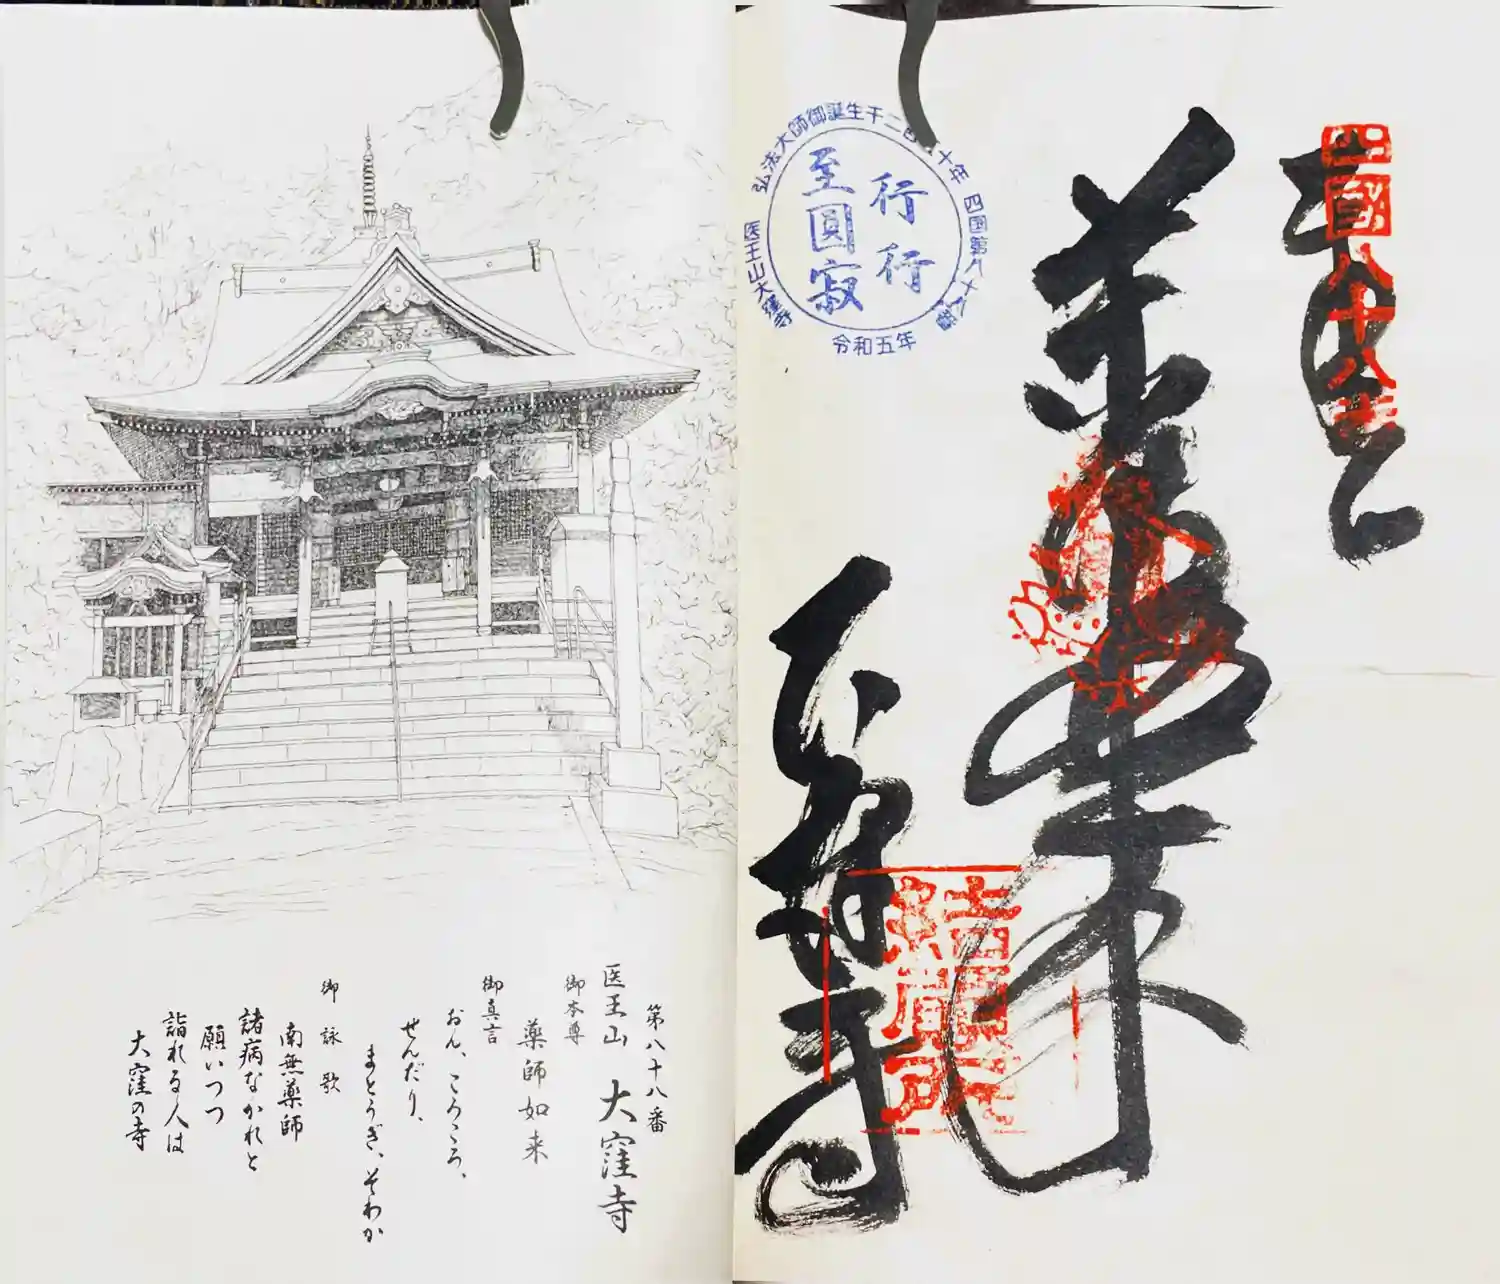 奉
四國八十八番
薬師如来
結願所
大窪寺
弘法大師御誕生千二百 十年 四国第八十八番
医王山大窪寺
令和五年
行行
至圓寂
第八十八番
医王山 大窪寺
御本尊
薬師如来
御真言
おん、ころころ、
せんだり、
まとうぎ、そわか
御詠歌
南無薬師
諸病なかれと
願いつつ
詣れる人は
大窪の寺